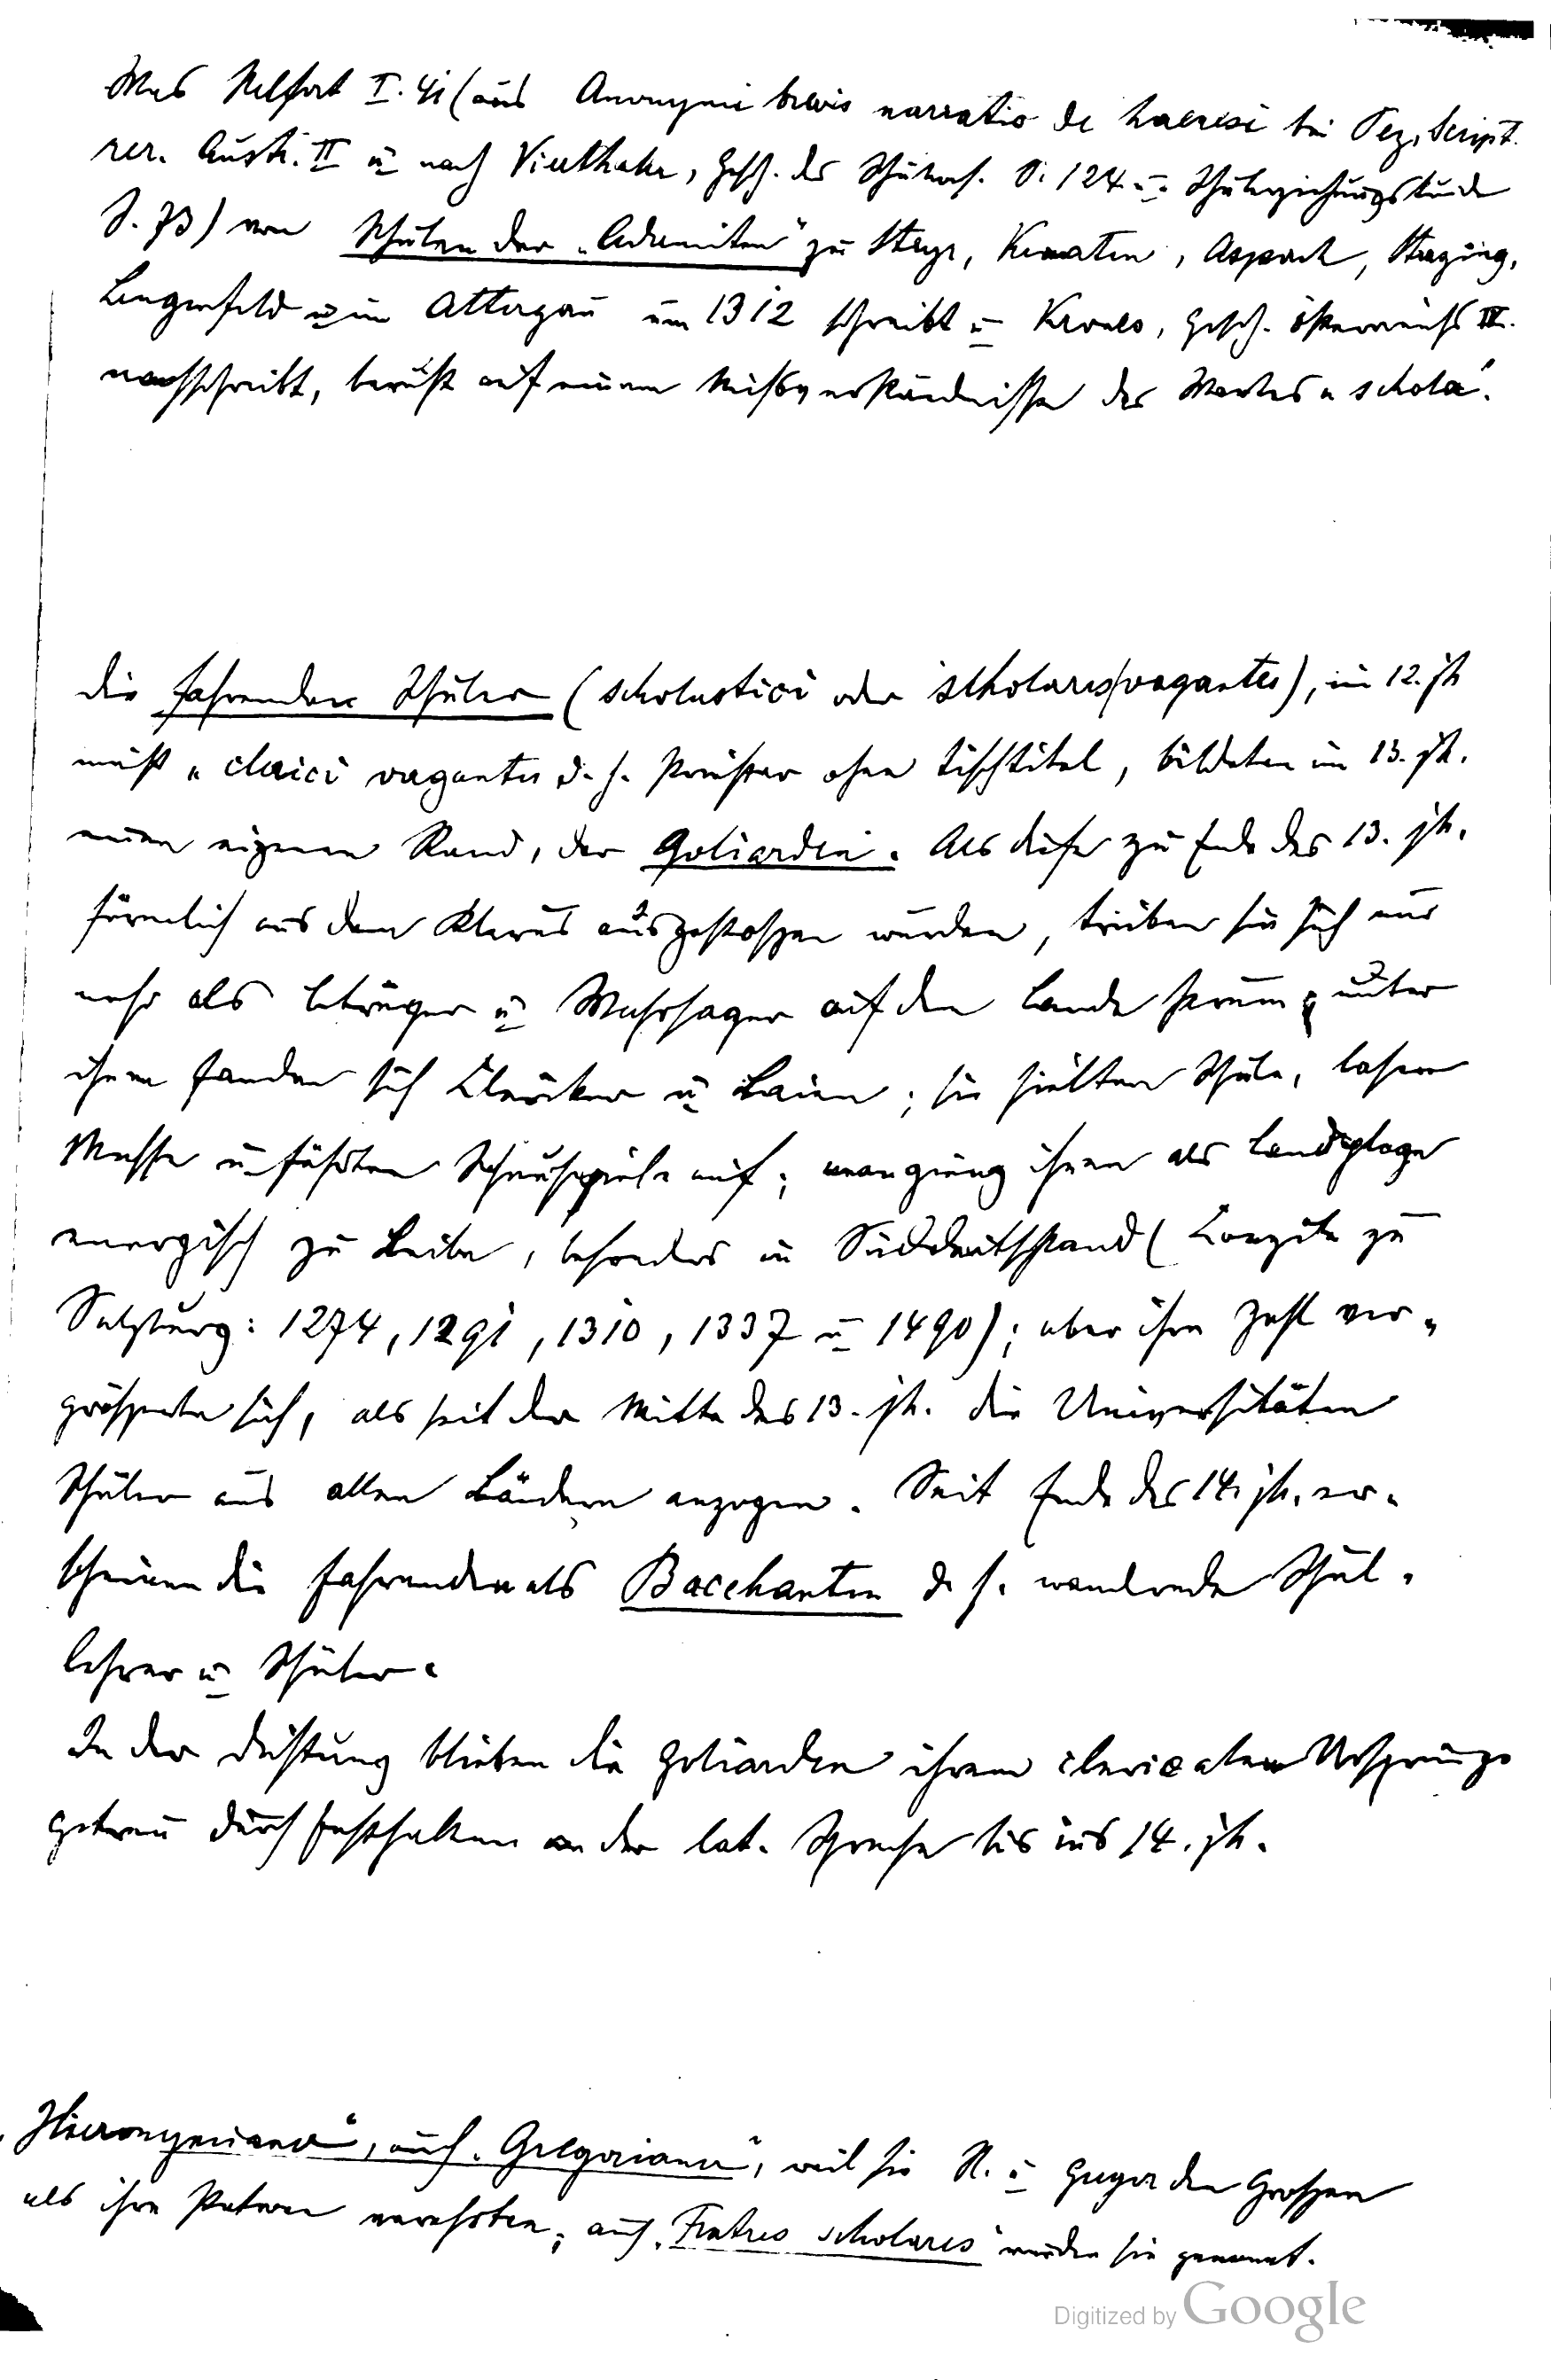 Was Helfert I. 41 (aus Anonymi brevis narratio de haeresi bei Pez, Script.
rer. Austr. II u nach Vierthaler, Gesch. des Schulwes. S. 124 u. Schulerziehungskunde
S. 73) von Schulen der „Adamiten“ zu Steyr, Kematen, Aspach,
Lengenfeld u im Attergau um 1312 schreibt u Krones, Gesch. Österreichs IV.
nachschreibt, beruht auf einem Missverständnisse des Wortes „schola“.
Die fahrenden Schüler (scholastici oder scholares vagantes), im 12. Jh
meist „clerici vagantes d. h. Priester ohne Tischtitel, bildeten im 13. Jh.
einen eigenen Stand, der Goliarden. Als diese zu Ende des 13. Jh.
förmlich aus dem Klerus ausgestossen wurden, trieben sie sich nur
mehr als Betrüger u Wahrsager auf dem Lande herum; unter
ihnen fanden sich Cleriker u Laien; sie hielten Schule, lasen
Messe u führten Schauspiele auf; man gieng ihnen als Landplage
energisch zu Leibe, besonders in Süddeutschland (Conzile zu
Salzburg: 1274, 1291, 1310, 1337 u 1490); aber ihre Zahl ver-
grösserte sich, als seit der Mitte des 13. Jh. die Universitäten
Schüler aus allen Ländern anzogen. Seit Ende des 14. Jh. er-
scheinen die Fahrenden als Bacchanten d. h. wandernde Schul-
lehrer u Schüler.
In der Dichtung blieben die Goliarden ihrem clericalen Ursprunge
getreu durch Festhalten an der lat. Sprache bis ins 14. Jh.
„Hieronymianer“, auch „Gregorianer“, weil sie H. u Gregor den Grossen
als ihre Patrone verehrten; auch „Fratres scholares“ wurden sie genannt.
Digitized by Google